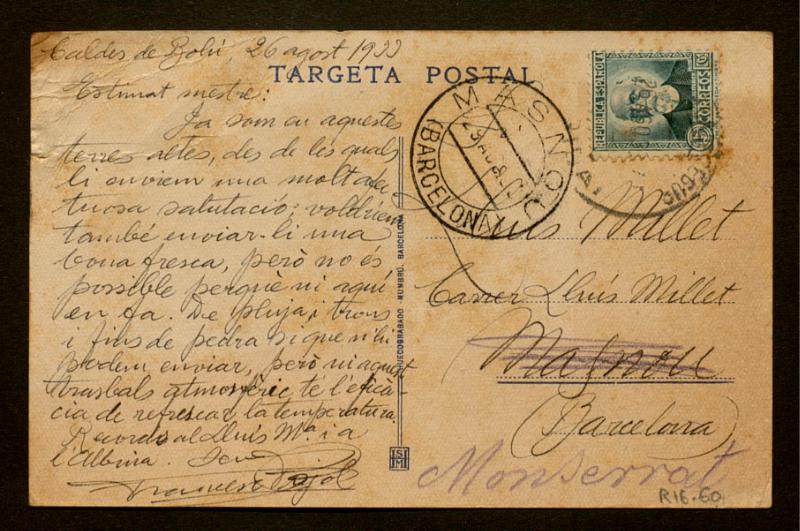 Caldes de Bohí, 26 agost 1933
TARGETA POSTAL
Estimat mestre:
Ja som en aquestes
terres altes, des de les quals
li enviem una molt afec
tuosa salutació; voldríem
també enviar-li una
bona fresca, però no és
possible perquè ni aquí
en fa. De pluja i trons
i fins de pedra si que n'hi
podem enviar, però ni aquest
trasbals atmosfèric té l'eficà-
cia de refrescar la temperatura.
Records al Lluís Mª i a
l'Albina.
Francesc Pujol
HUECOGRABADO MUMBRÚ. BARCELONA
MASNOU
(BARCELONA)
REPUBLICA ESPAÑOLA
CORREOS
15
Lluís Millet
Carrer Lluís Millet
Masnou
(Barcelona)
Monserrat
R16-60